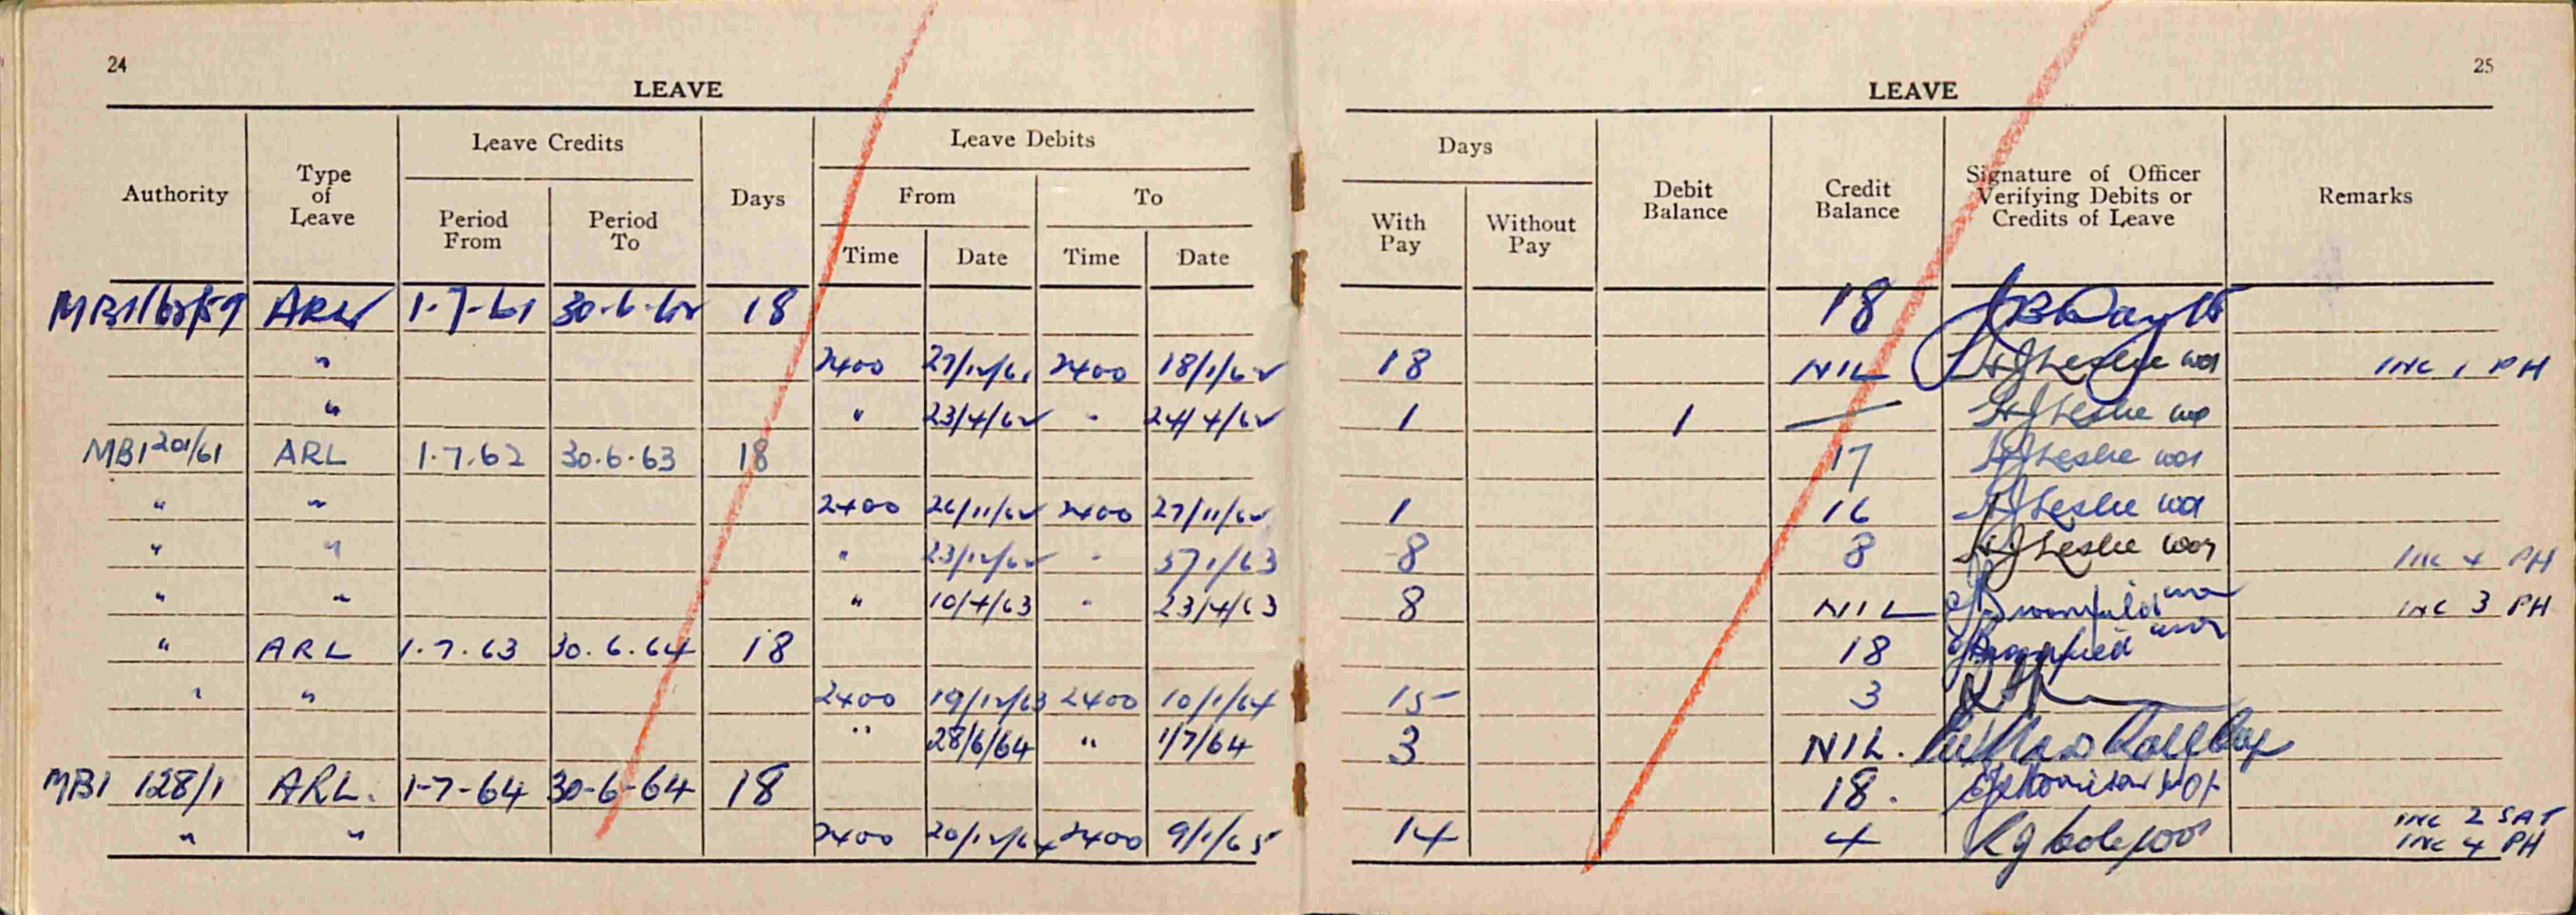 24
LEAVE
Authority Type of Leave Leave Credits Period From Period To Days Leave Debits From Time Date To Time Date
MB1/62/59 ARL 1-7-61 30-6-62 18
" 2400 27/12/61 2400 18/1/62
" " 23/4/62 " 24/4/62
MB1 201/61 ARL 1.7.62 30.6.63 18
" " 2400 26/11/62 2400 27/11/62
" " " 23/12/62 "
" " " 10/4/63 " 23/4/63
" ARL 1.7.63 30.6.64 18
" " 2400 19/12/63 2400 10/1/64
" 28/6/64 " 1/7/64
MB1 128/1 ARL. 1-7-64 30-6-64 18
" " 2400 20/12/64 2400 9/1/65
25
LEAVE
Days With Pay Without Pay Debit Balance Credit Balance Signature of Officer Verifying Debits or Credits of Leave Remarks
18
18 NIL HJLeslie INC 1 PH
1 1 — HJLeslie
17 HJLeslie
1 16 HJLeslie
8 8 HJLeslie INC 4 PH
8 NIL INC 3 PH
18
15 3
3 NIL.
18.
14 4 INC 2 SAT
INC 4 PH